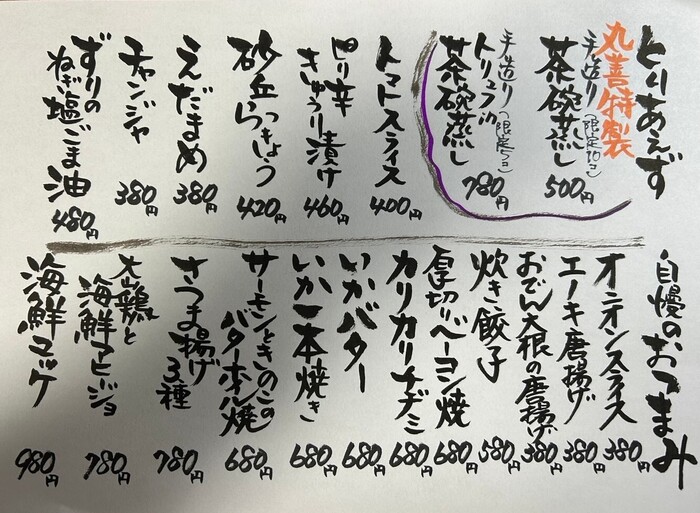 とりあえず
丸善特製
手造り(限定10コ)
茶碗蒸し
500円
手造り(限定5コ)
トリュフ
茶碗蒸し
780円
トマトスライス
400円
ピリ辛
きゅうり漬け
460円
砂丘らっきょう
420円
えだまめ
380円
チャンジャ
380円
ずりの
ねぎ塩ごま油
480円
自慢のおつまみ
オニオンスライス
380円
エノキ唐揚げ
380円
おでん大根の唐揚げ
380円
炊き餃子
580円
厚切りベーコン焼
680円
カリカリチヂミ
680円
いかバター
680円
いか一本焼き
680円
サーモンときのこの
バターホイル焼
680円
さつま揚げ
3種
780円
大山鶏と
海鮮アヒージョ
780円
海鮮ユッケ
980円